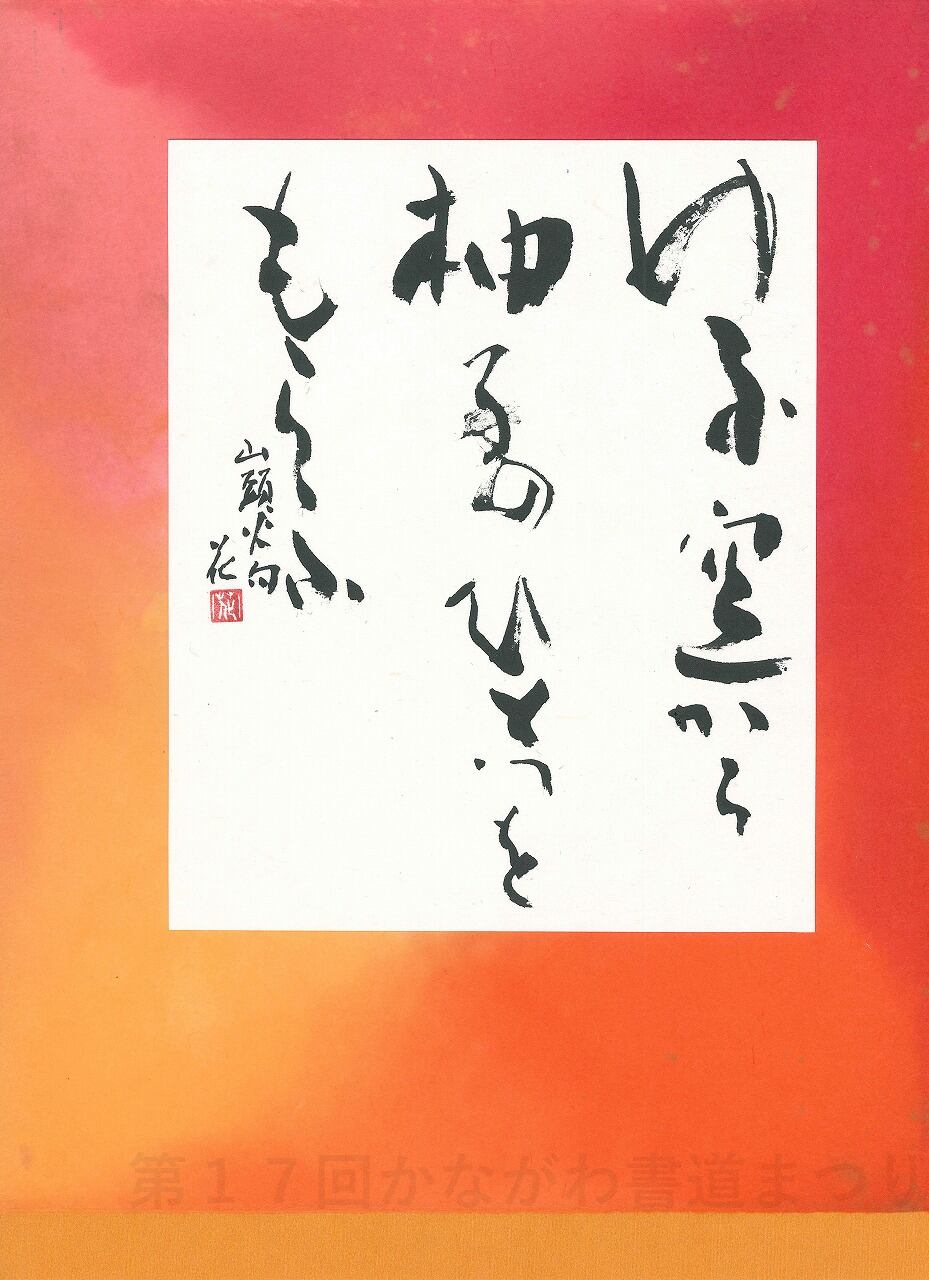 ゆふ空から
柚子のひとつを
もらふ
山頭火句
花
第１７回かながわ書道まつり